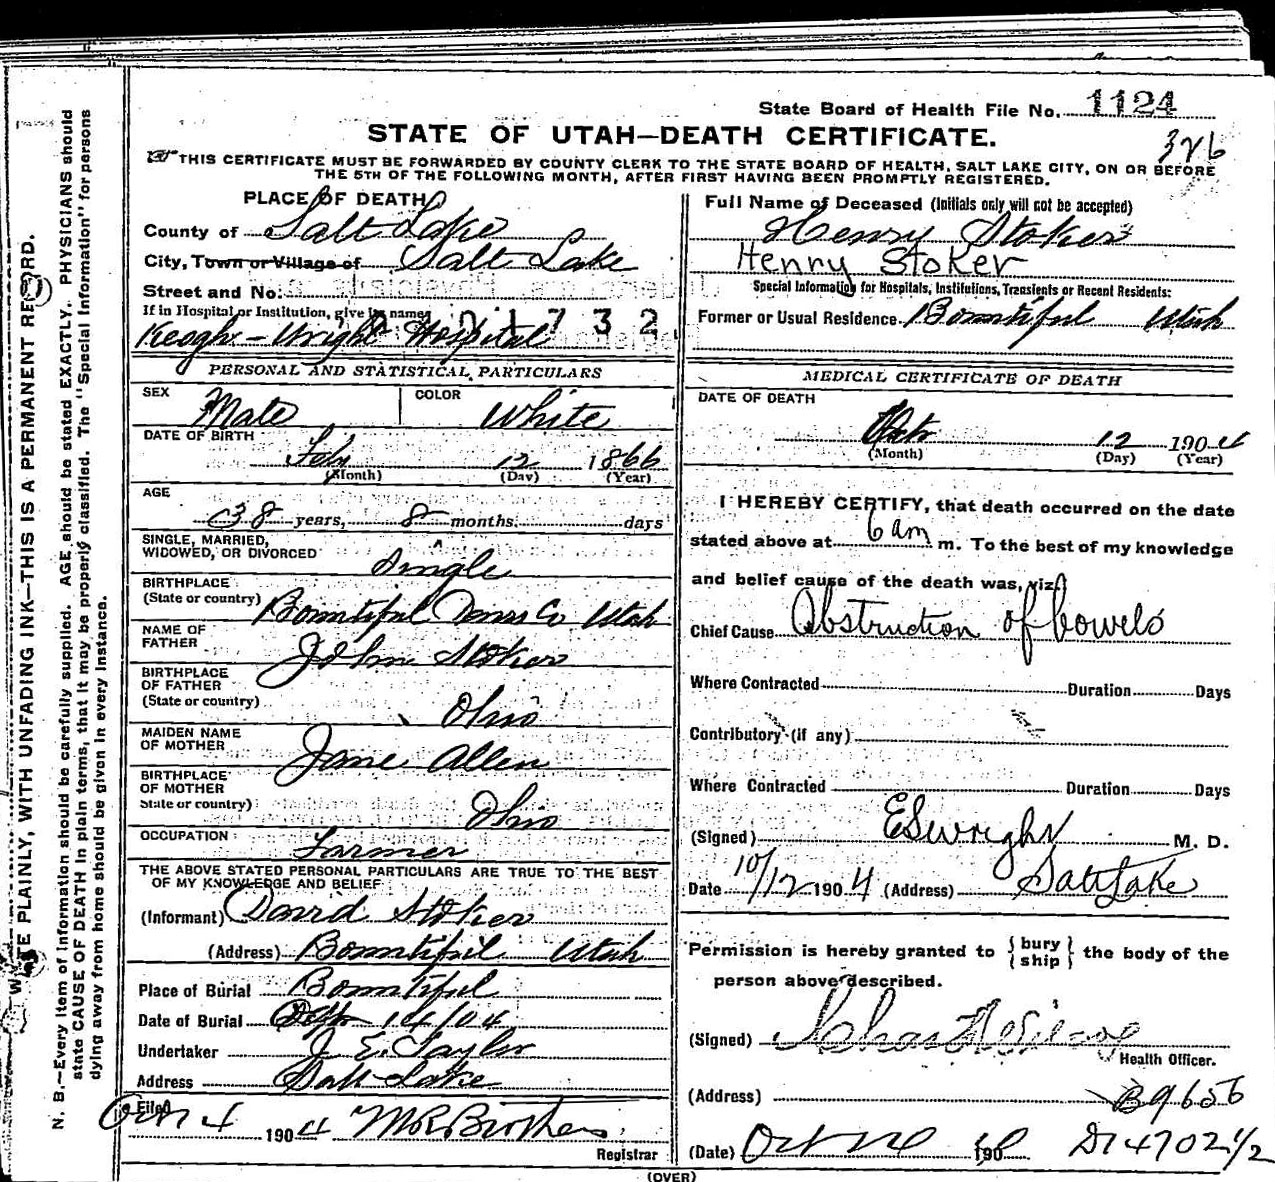 State Board of Health File No. 1124
STATE OF UTAH—DEATH CERTIFICATE.
326
THIS CERTIFICATE MUST BE FORWARDED BY COUNTY CLERK TO THE STATE BOARD OF HEALTH, SALT LAKE CITY, ON OR BEFORE
THE 5TH OF THE FOLLOWING MONTH, AFTER FIRST HAVING BEEN PROMPTLY REGISTERED.
PLACE OF DEATH
County of Salt Lake
City, Town or Village of Salt Lake
Street and No.
If in Hospital or Institution, give its name
01732
Keogh-Wright Hospital
PERSONAL AND STATISTICAL PARTICULARS
SEX Male COLOR White
DATE OF BIRTH
Feb 12 1866
(Month) (Day) (Year)
AGE
38 years, 8 months. days
SINGLE, MARRIED,
WIDOWED, OR DIVORCED Single
BIRTHPLACE
(State or country) Bountiful Davis Co Utah
NAME OF
FATHER John Stoker
BIRTHPLACE
OF FATHER
(State or country) Ohio
MAIDEN NAME
OF MOTHER Jane Allen
BIRTHPLACE
OF MOTHER
State or country) Ohio
OCCUPATION Farmer
THE ABOVE STATED PERSONAL PARTICULARS ARE TRUE TO THE BEST
OF MY KNOWLEDGE AND BELIEF
(Informant) David Stoker
(Address) Bountiful Utah
Place of Burial Bountiful
Date of Burial Oct 14/04
Undertaker J. E. Taylor
Address Salt Lake
Filed
1904 M R Brothers
Registrar
(OVER)
Full Name of Deceased (Initials only will not be accepted)
Henry Stoker
Henry Stoker
Special Information for Hospitals, Institutions, Transients or Recent Residents:
Former or Usual Residence Bountiful Utah
MEDICAL CERTIFICATE OF DEATH
DATE OF DEATH
Oct 12 1904
(Month) (Day) (Year)
I HEREBY CERTIFY, that death occurred on the date
stated above at 6 am m. To the best of my knowledge
and belief cause of the death was, viz.
Chief Cause Obstruction of bowels
Where Contracted Duration Days
Contributory (if any)
Where Contracted Duration Days
(Signed) E S Wright M. D.
Date 10/12 1904 (Address) Salt Lake
Permission is hereby granted to { bury ship } the body of the
person above described.
(Signed)
Health Officer.
(Address) B9656
(Date) Oct 190 D14702 1/2
WRITE PLAINLY, WITH UNFADING INK—THIS IS A PERMANENT RECORD.
N. B.—Every item of information should be carefully supplied. AGE should be stated EXACTLY. PHYSICIANS should
state CAUSE OF DEATH in plain terms, that it may be properly classified. The "Special Information" for persons
dying away from home should be given in every instance.